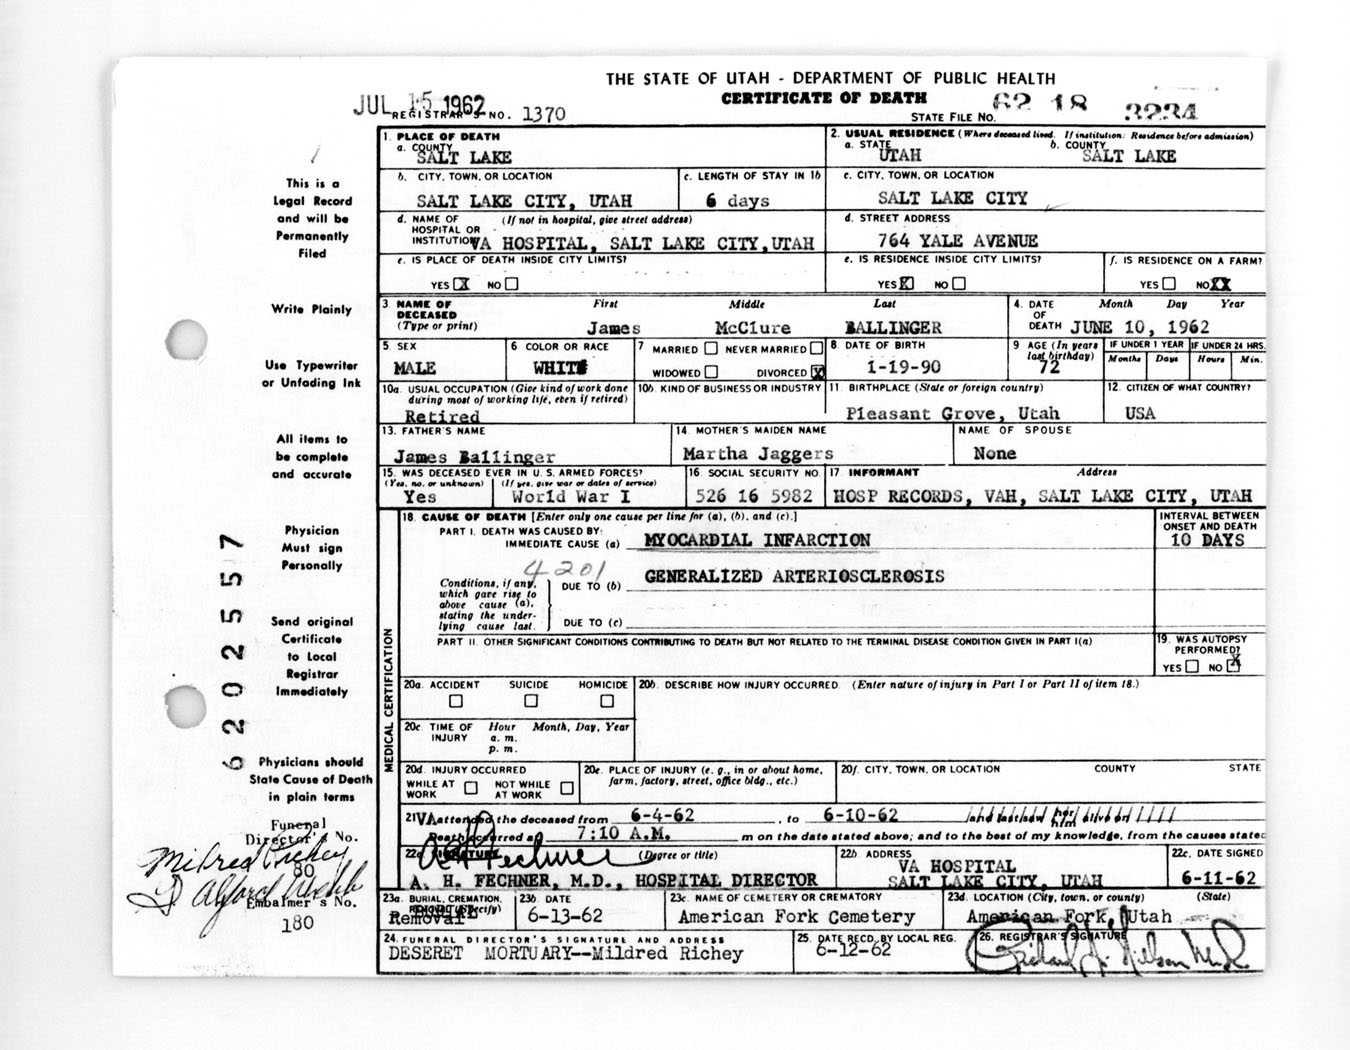 THE STATE OF UTAH - DEPARTMENT OF PUBLIC HEALTH
CERTIFICATE OF DEATH
JUL 15 1962
REGISTRAR'S NO. 1370
STATE FILE NO. 62 18 3234
This is a
Legal Record
and will be
Permanently
Filed
Write Plainly
Use Typewriter
or Unfading Ink
All items to
be complete
and accurate
Physician
Must sign
Personally
Send original
Certificate
to Local
Registrar
Immediately
Physicians should
State Cause of Death
in plain terms
Funeral
Director's No.
Mildred Richey
80
Embalmer's No.
180
6202557
1. PLACE OF DEATH
a. COUNTY
SALT LAKE
2. USUAL RESIDENCE (Where deceased lived. If institution: Residence before admission)
a. STATE b. COUNTY
UTAH SALT LAKE
b. CITY, TOWN, OR LOCATION
SALT LAKE CITY, UTAH
c. LENGTH OF STAY IN 1b
6 days
c. CITY, TOWN, OR LOCATION
SALT LAKE CITY
d. NAME OF (If not in hospital, give street address)
HOSPITAL OR
INSTITUTION VA HOSPITAL, SALT LAKE CITY, UTAH
d. STREET ADDRESS
764 YALE AVENUE
e. IS PLACE OF DEATH INSIDE CITY LIMITS?
YES X NO
e. IS RESIDENCE INSIDE CITY LIMITS?
YES X NO
f. IS RESIDENCE ON A FARM?
YES NO XX
3. NAME OF DECEASED (Type or print)
First Middle Last
James McClure BALLINGER
4. DATE OF DEATH Month Day Year
JUNE 10, 1962
5. SEX
MALE
6. COLOR OR RACE
WHITE
7 MARRIED NEVER MARRIED
WIDOWED DIVORCED X
8. DATE OF BIRTH
1-19-90
9 AGE (In years last birthday)
72
IF UNDER 1 YEAR
Months Days
IF UNDER 24 HRS.
Hours Min.
10a. USUAL OCCUPATION (Give kind of work done during most of working life, even if retired)
Retired
10b. KIND OF BUSINESS OR INDUSTRY
11. BIRTHPLACE (State or foreign country)
Pleasant Grove, Utah
12. CITIZEN OF WHAT COUNTRY?
USA
13. FATHER'S NAME
James Ballinger
14. MOTHER'S MAIDEN NAME
Martha Jaggers
NAME OF SPOUSE
None
15. WAS DECEASED EVER IN U. S. ARMED FORCES?
(Yes, no, or unknown) (If yes, give war or dates of service)
Yes World War I
16. SOCIAL SECURITY NO.
526 16 5982
17 INFORMANT Address
HOSP RECORDS, VAH, SALT LAKE CITY, UTAH
MEDICAL CERTIFICATION
18. CAUSE OF DEATH [Enter only one cause per line for (a), (b), and (c).]
PART I. DEATH WAS CAUSED BY:
IMMEDIATE CAUSE (a) MYOCARDIAL INFARCTION
INTERVAL BETWEEN
ONSET AND DEATH
10 DAYS
4201
Conditions, if any,
which gave rise to
above cause (a),
stating the under-
lying cause last.
DUE TO (b) GENERALIZED ARTERIOSCLEROSIS
DUE TO (c)
PART II. OTHER SIGNIFICANT CONDITIONS CONTRIBUTING TO DEATH BUT NOT RELATED TO THE TERMINAL DISEASE CONDITION GIVEN IN PART I(a)
19. WAS AUTOPSY
PERFORMED?
YES NO X
20a. ACCIDENT SUICIDE HOMICIDE
20b. DESCRIBE HOW INJURY OCCURRED. (Enter nature of injury in Part I or Part II of item 18.)
20c. TIME OF INJURY Hour Month, Day, Year
a. m.
p. m.
20d. INJURY OCCURRED
WHILE AT WORK NOT WHILE AT WORK
20e. PLACE OF INJURY (e. g., in or about home,
farm, factory, street, office bldg., etc.)
20f. CITY, TOWN, OR LOCATION COUNTY STATE
21 VA attended the deceased from 6-4-62, to 6-10-62
Death occurred at 7:10 A.M. m on the date stated above; and to the best of my knowledge, from the causes stated
22a SIGNATURE (Degree or title)
A H Fechner
A. H. FECHNER, M.D., HOSPITAL DIRECTOR
22b ADDRESS
VA HOSPITAL
SALT LAKE CITY, UTAH
22c. DATE SIGNED
6-11-62
23a. BURIAL, CREMATION,
REMOVAL (Specify)
Removal
23b DATE
6-13-62
23c. NAME OF CEMETERY OR CREMATORY
American Fork Cemetery
23d. LOCATION (City, town, or county) (State)
American Fork, Utah
24. FUNERAL DIRECTOR'S SIGNATURE AND ADDRESS
DESERET MORTUARY--Mildred Richey
25. DATE RECD. BY LOCAL REG.
6-12-62
26. REGISTRAR'S SIGNATURE